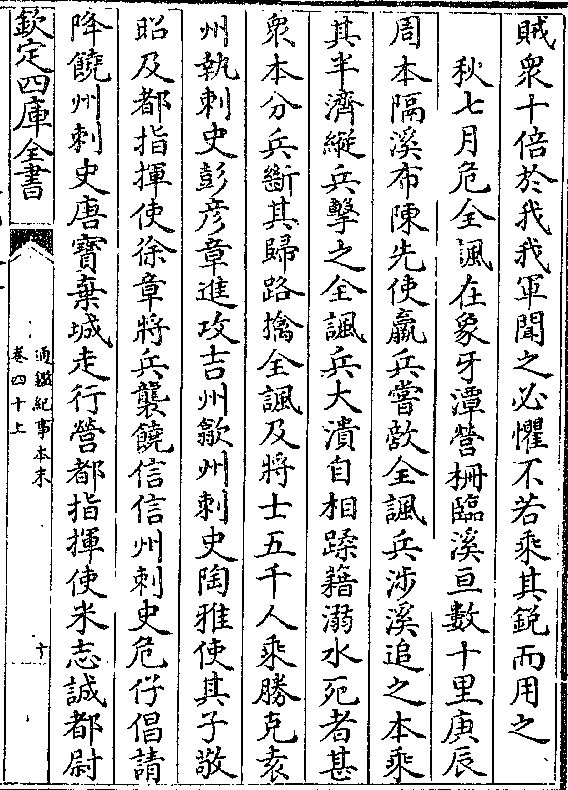 賊衆十倍於我我軍聞之必懼不若乘其銳而用之
秋七月危全諷在象牙潭營柵臨溪亘數十里庚辰
周本隔溪布陳先使羸兵嘗敵全諷兵涉溪追之本乘
其半濟縱兵擊之全諷兵大潰自相蹂籍溺水死者甚
衆本分兵斷其歸路擒全諷及將士五千人乘勝克袁
州執刺史彭彥章進攻吉州歙州刺史陶雅使其子敬
昭及都指揮使徐章將兵襲饒信信州刺史危仔倡請
降饒州刺史唐寶棄城走行營都指揮使米志誠都尉
欽定四庫全書
通鑑紀事本末
卷四十上
十